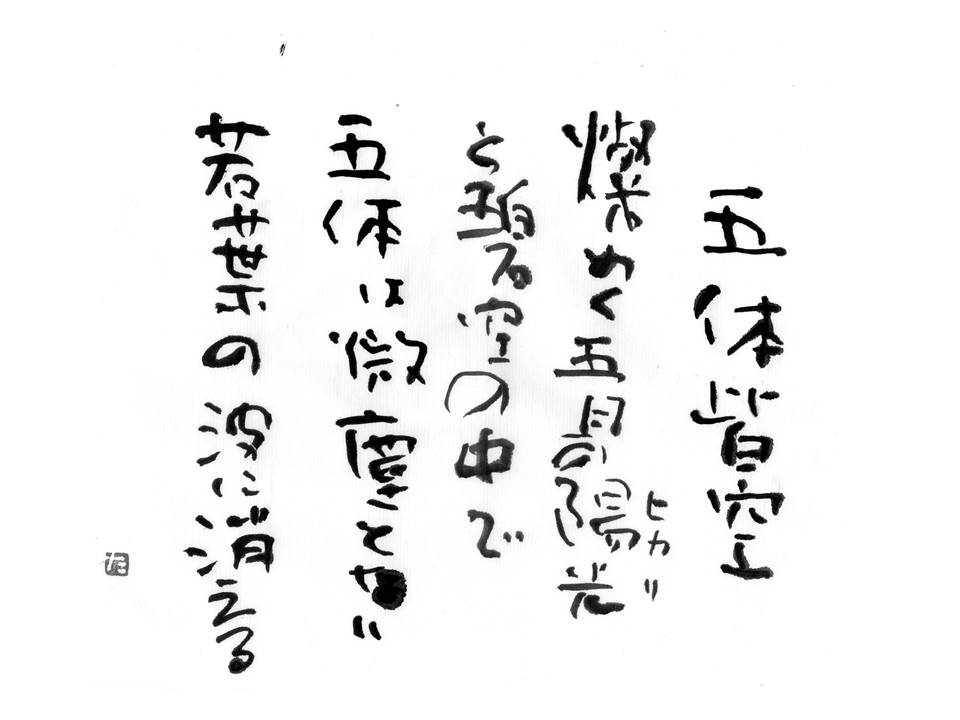 五体皆空
燦めく五月の陽光
ヒカリ
と碧空の中で
五体は微塵となり
若葉の波に消える
た